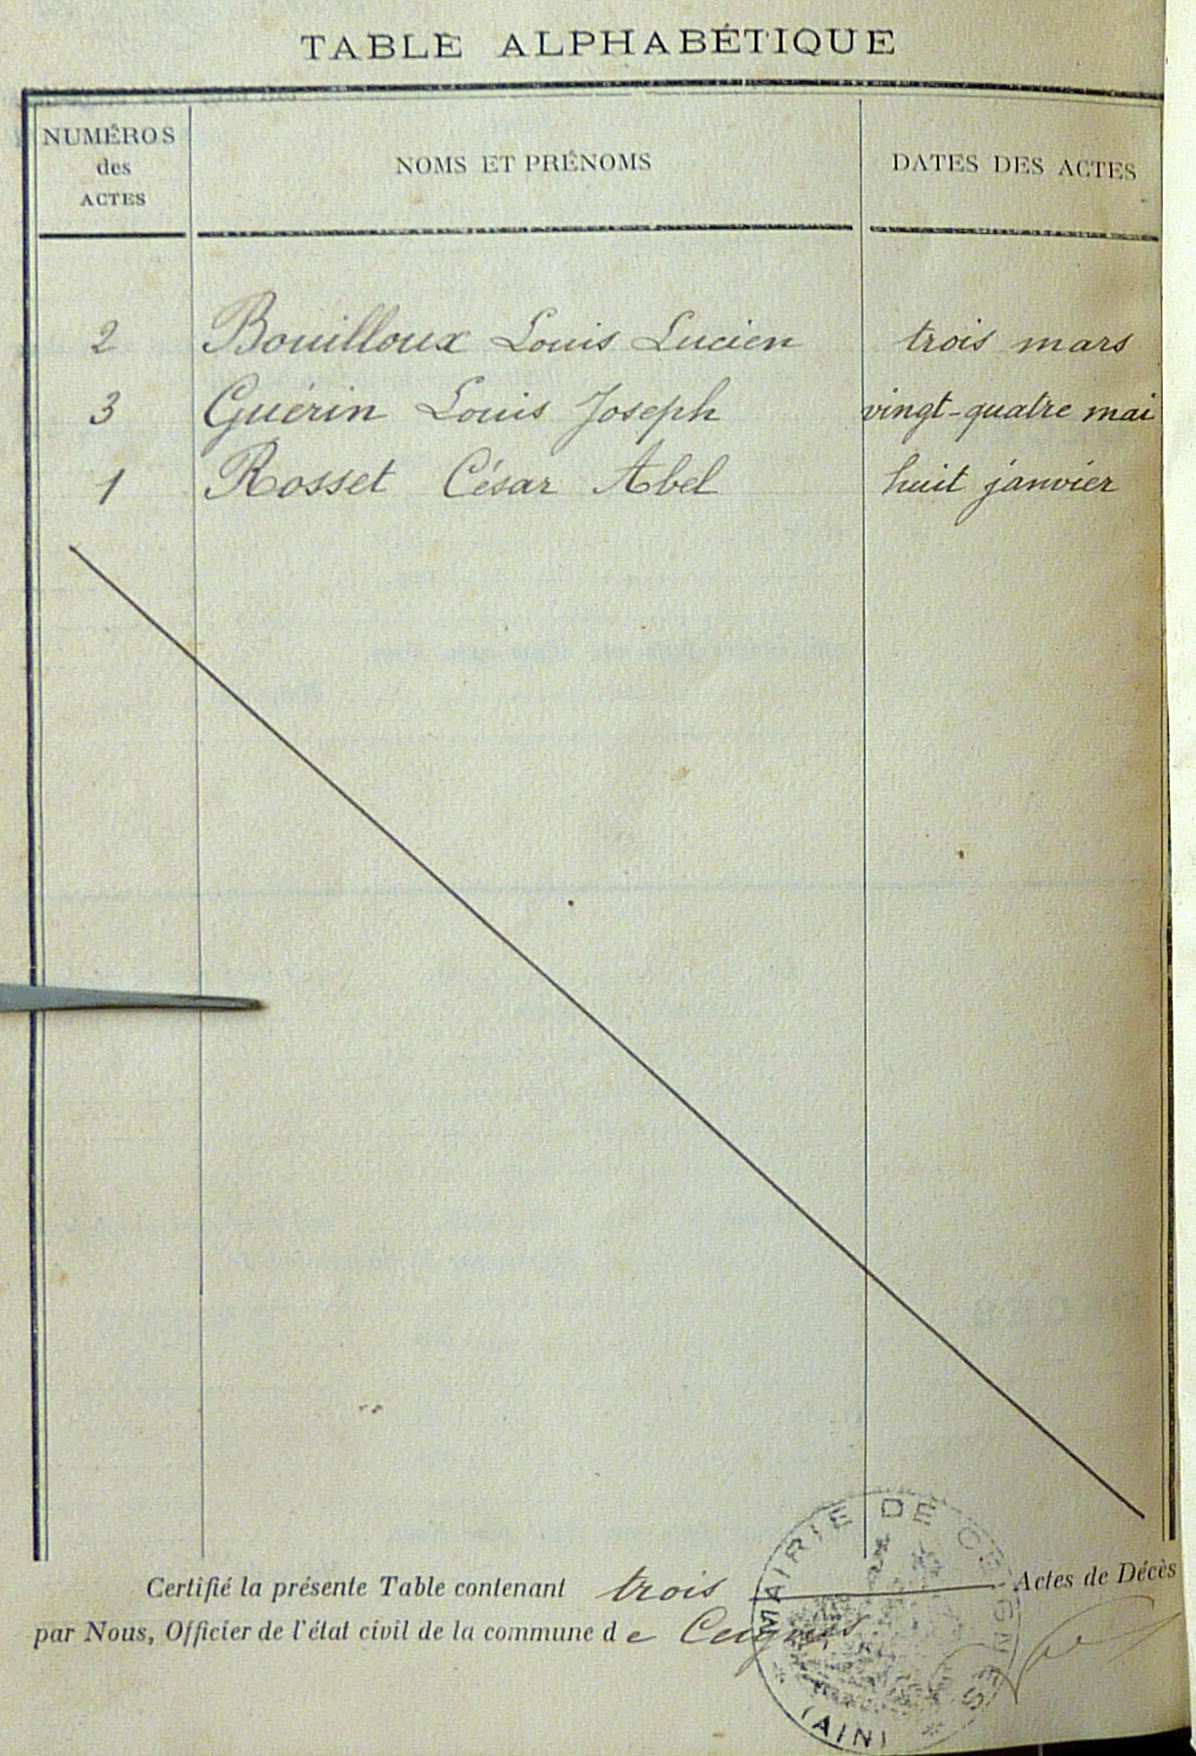 TABLE ALPHABÉTIQUE
NUMÉROS des ACTES NOMS ET PRÉNOMS DATES DES ACTES
2 Bouilloux Louis Lucien trois mars
3 Guérin Louis Joseph vingt-quatre mai
1 Rosset César Abel huit janvier
Certifié la présente Table contenant trois Actes de Décès
par Nous, Officier de l'état civil de la commune de Ceignes
MAIRIE DE CEIGNES
(AIN)